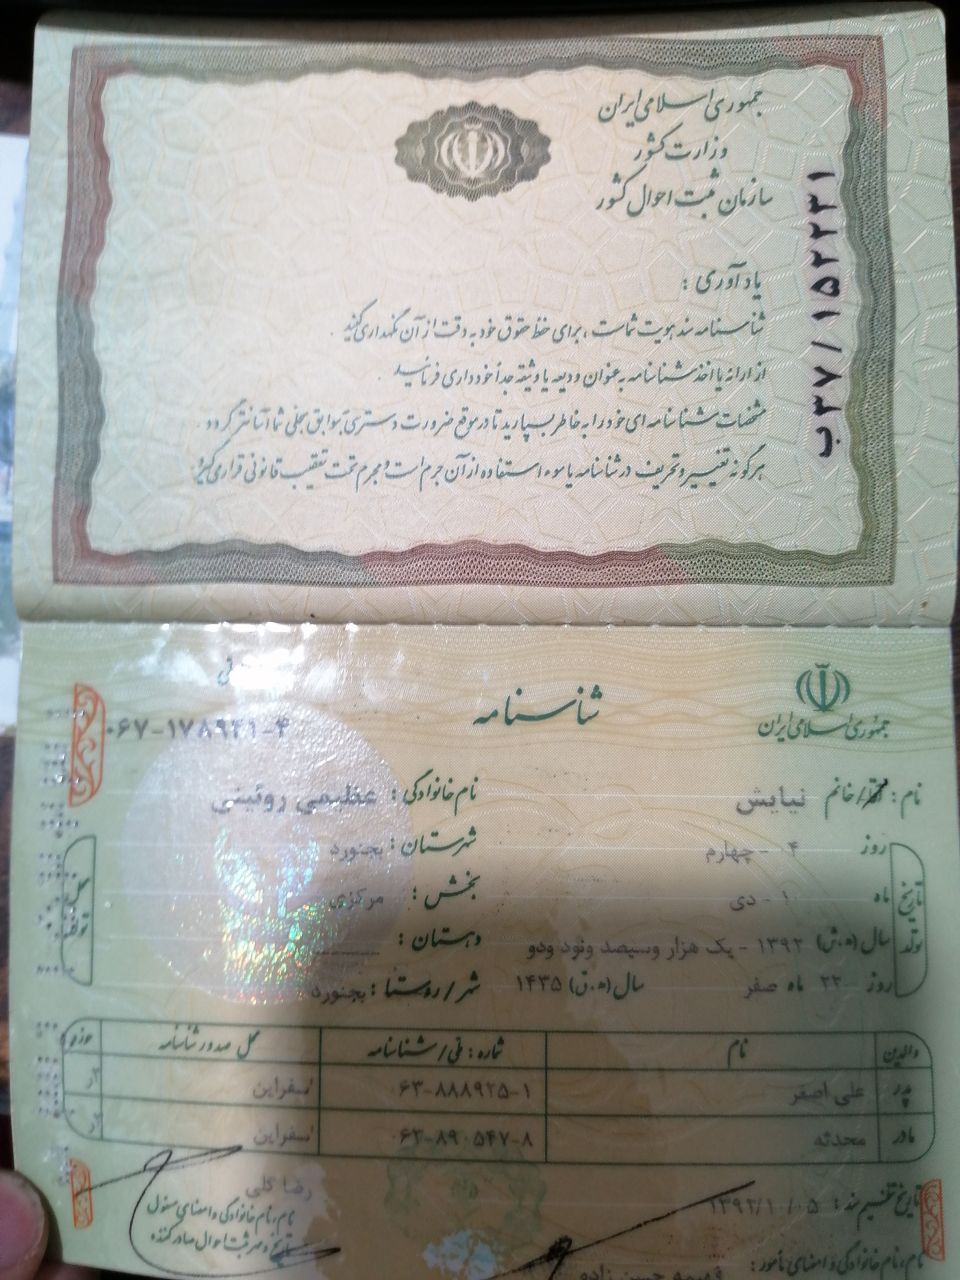 جمهوری اسلامی ایران
وزارت کشور
سازمان ثبت احوال کشور
ب۳۷/۱۵۲۲۳۱
یادآوری :
شناسنامه سند هویت شماست ، برای حفظ حقوق خود به دقت از آن نگهداری کنید .
از ارائه یا اخذ شناسنامه به عنوان ودیعه یا وثیقه جداً خودداری فرمائید .
مشخصات شناسنامه ای خود را به خاطر بسپارید تا در موقع ضرورت دسترسی به سوابق سجلی شما آسانتر گردد .
هرگونه تغییر و تحریف در شناسنامه یا سوء استفاده از آن جرم است و مجرم تحت تعقیب قانونی قرار می گیرد .
جمهوری اسلامی ایران
شناسنامه
۰۶۷-۱۷۸۹۴۱-۴
نام : آقا/خانم نیایش نام خانوادگی : عظیمی روئینی
تاریخ تولد
روز ۴ - چهارم شهرستان : بجنورد
ماه ۱۰ - دی بخش : مرکزی
سال (ه.ش) ۱۳۹۲ - یک هزار وسیصد ونود ودو دهستان : --------
روز ۲۲ ماه صفر سال (ه.ق) ۱۴۳۵ شهر/روستا : بجنورد
محل تولد
والدین نام شماره : ملی/شناسنامه محل صدور شناسنامه حوزه
پدر علی اصغر ۰۶۳-۸۸۸۹۲۵-۱ اسفراین
مادر محدثه ۰۶۳-۸۹۰۵۴۷-۸ اسفراین
تاریخ تنظیم سند : ۱۳۹۲/۱۰/۰۵
نام،نام خانوادگی و امضای مأمور : فهیمه حسن زاده
رضا گلی
نام،نام خانوادگی و امضای مسئول
تاریخ و مهر ثبت احوال صادرکننده